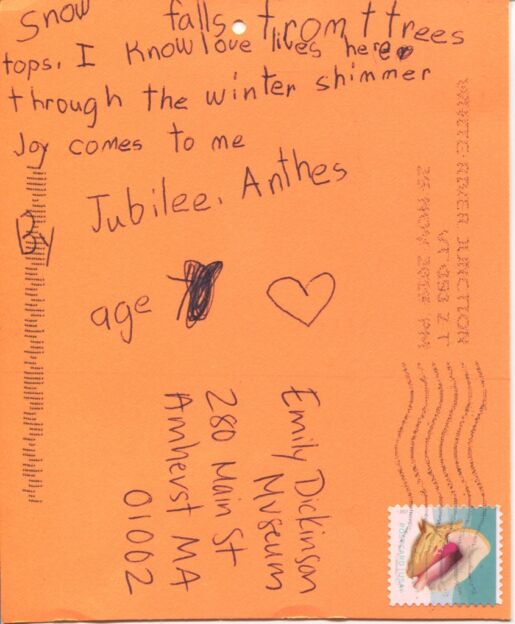 Snow falls from t trees
tops. I know love lives here
through the winter shimmer
Joy comes to me
By
Jubilee. Anthes
age
Emily Dickinson
Museum
280 Main St
Amherst MA
01002
WHITE RIVER JUNCTION
VT 053 2 T